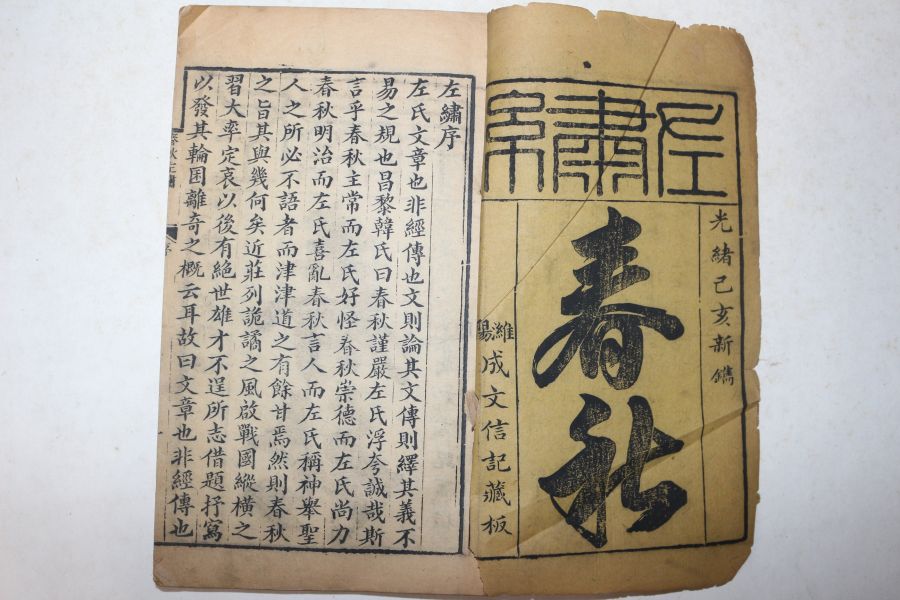 左繡
光緒己亥新鐫
春秋
維陽成文信記藏板
左繡序
左氏文章也非經傳也文則論其文傳則繹其義不
易之規也昌黎韓氏曰春秋謹嚴左氏浮夸誠哉斯
言乎春秋主常而左氏好怪春秋崇德而左氏尚力
春秋明治而左氏喜亂春秋言人而左氏稱神舉聖
人之所必不語者而津津道之有餘甘焉然則春秋
之旨其與幾何矣近莊列詭譎之風啟戰國縱橫之
習大率定哀以後有絕世雄才不逞所志借題抒寫
以發其輪囷離奇之概云耳故曰文章也非經傳也